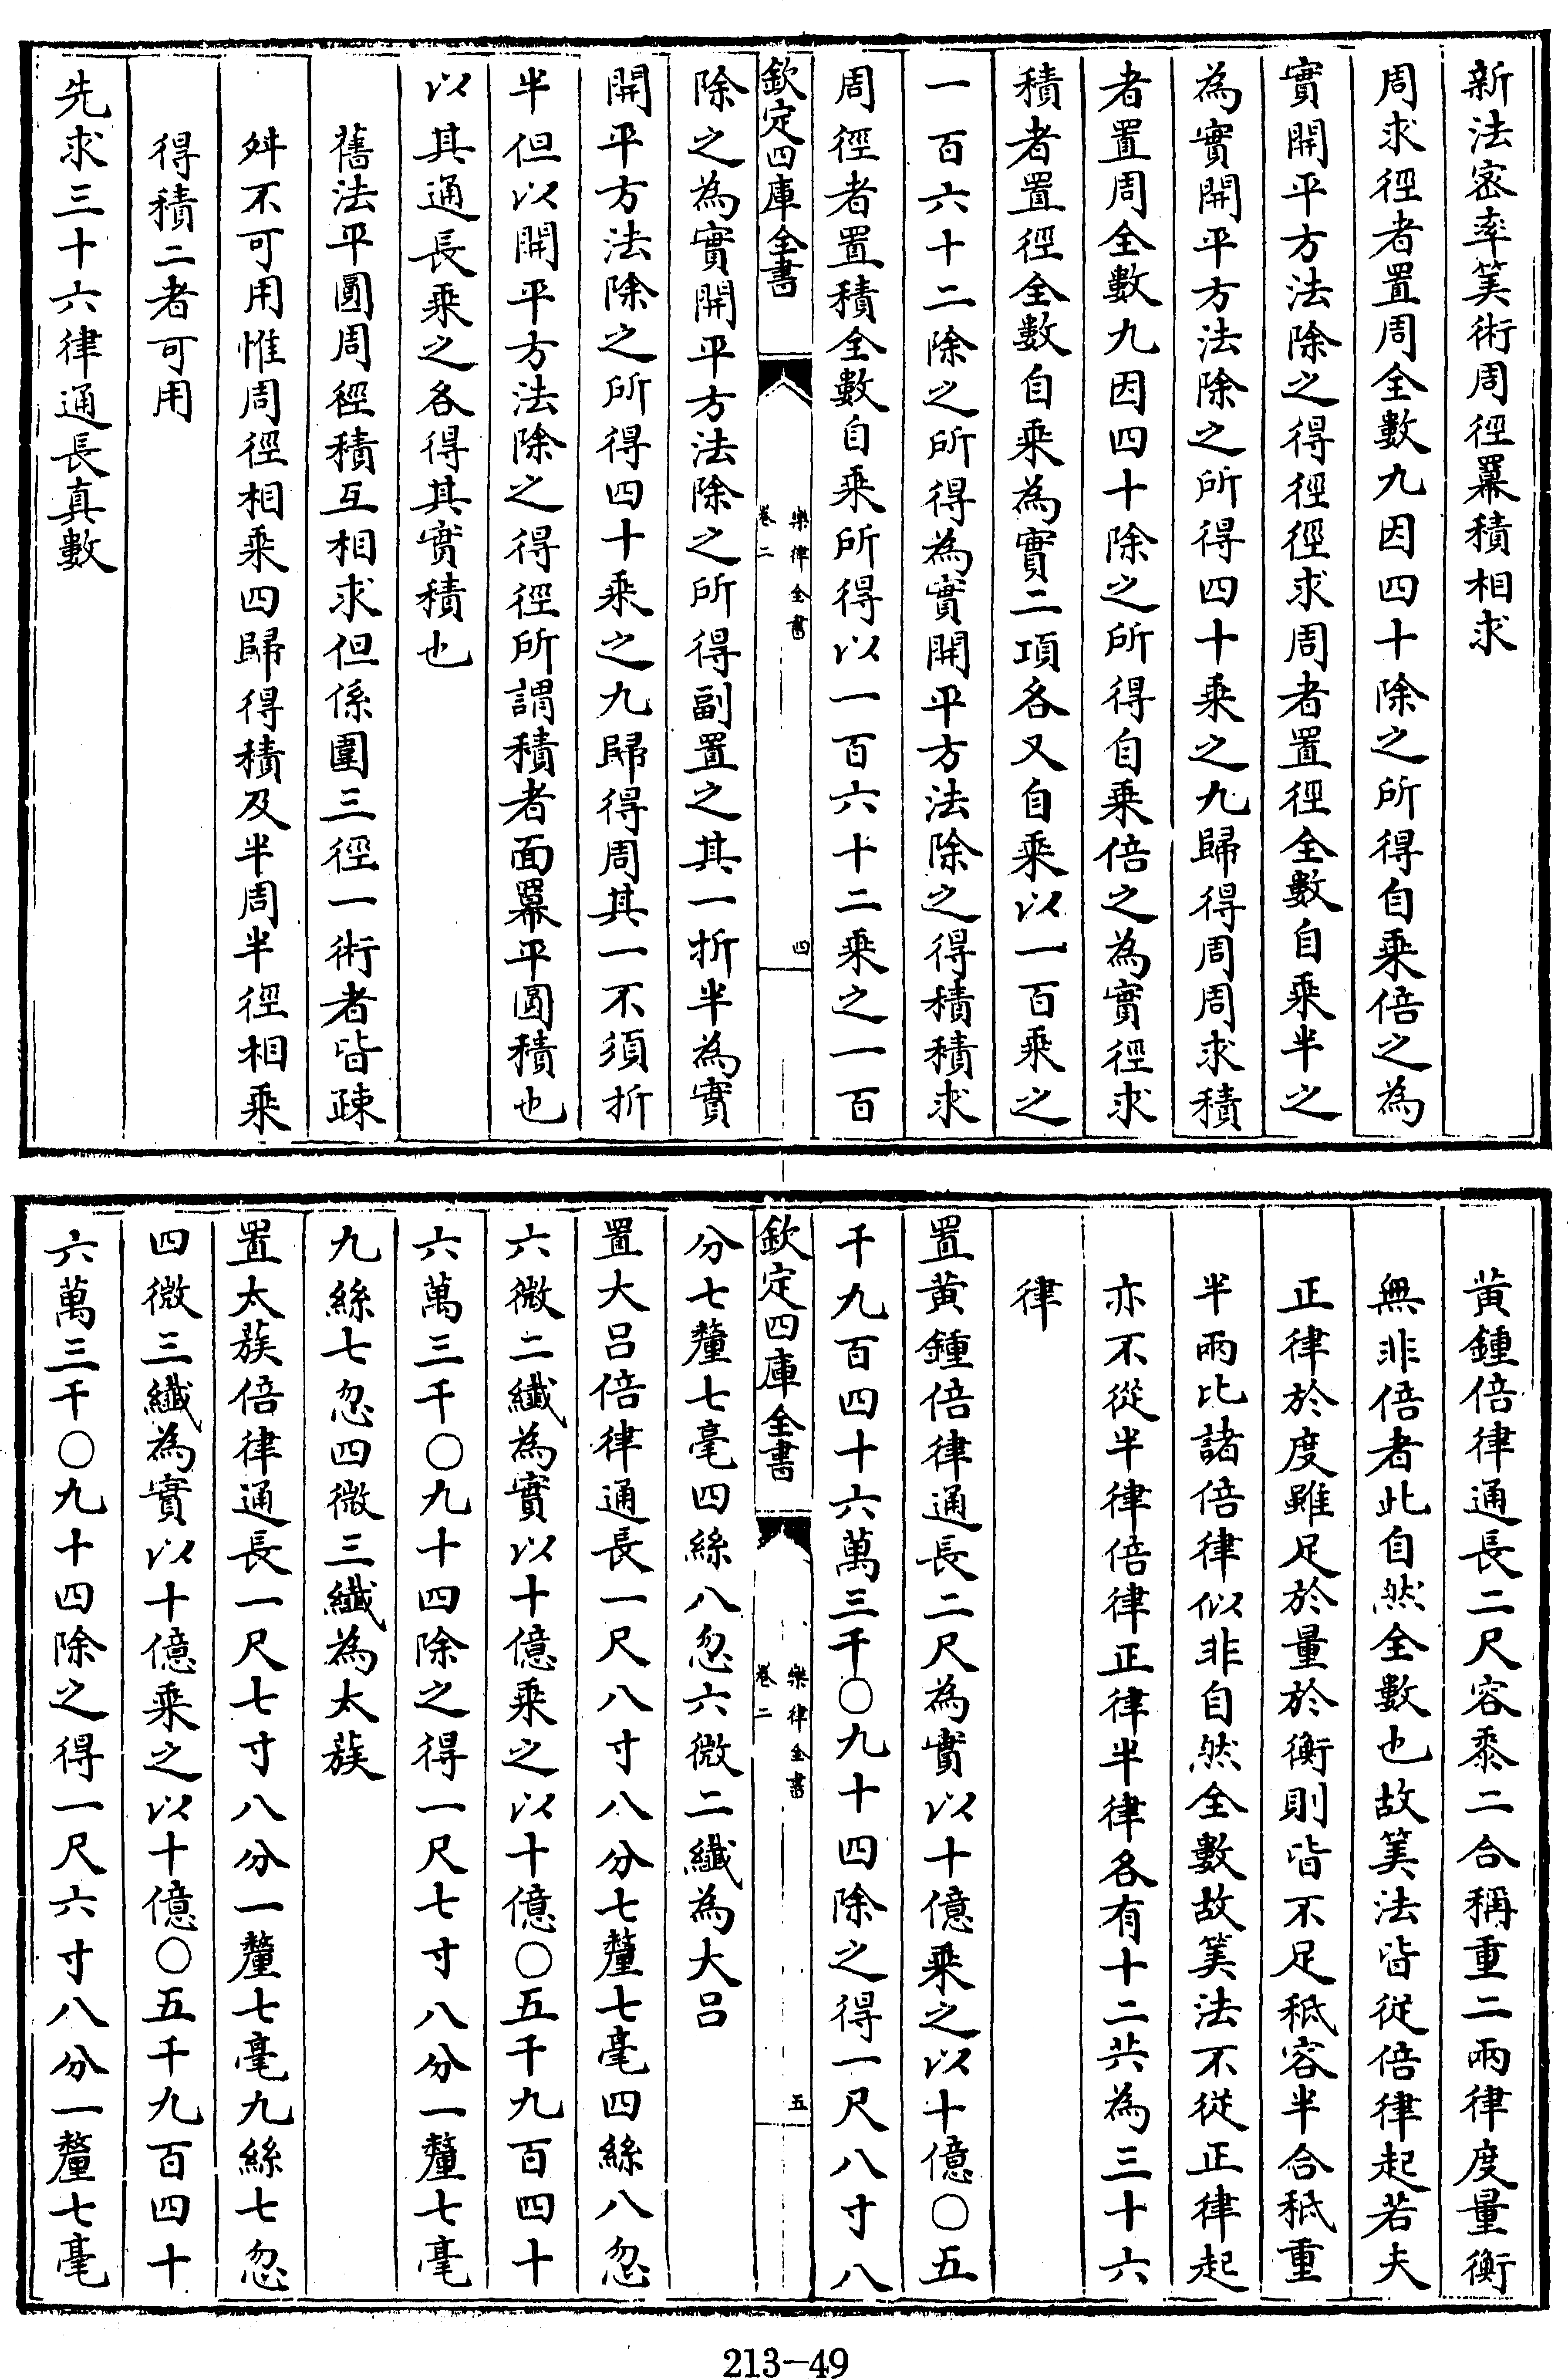 新法密率筭術周徑羃積相求
周求徑者置周全數九因四十除之所得自乘倍之為
實開平方法除之得徑徑求周者置徑全數自乘半之
為實開平方法除之所得四十乘之九歸得周周求積
者置周全數九因四十除之所得自乘倍之為實徑求
積者置徑全數自乘為實二項各又自乘以一百乘之
一百六十二除之所得為實開平方法除之得積積求
周徑者置積全數自乘所得以一百六十二乘之一百
欽定四庫全書
樂律全書
卷二
四
除之為實開平方法除之所得副置之其一折半為實
開平方法除之所得四十乘之九歸得周其一不須折
半但以開平方法除之得徑所謂積者面羃平圓積也
以其通長乘之各得其實積也
舊法平圓周徑積互相求但係圍三徑一術者皆疎
舛不可用惟周徑相乘四歸得積及半周半徑相乘
得積二者可用
先求三十六律通長真數
黃鍾倍律通長二尺容黍二合稱重二兩律度量衡
無非倍者此自然全數也故筭法皆從倍律起若夫
正律於度雖足於量於衡則皆不足秪容半合秪重
半兩比諸倍律似非自然全數故筭法不從正律起
亦不從半律倍律正律半律各有十二共為三十六
律
置黃鍾倍律通長二尺為實以十億乘之以十億〇五
千九百四十六萬三千〇九十四除之得一尺八寸八
欽定四庫全書
樂律全書
卷二
五
分七釐七毫四絲八忽六微二纖為大呂
置大呂倍律通長一尺八寸八分七釐七毫四絲八忽
六微二纖為實以十億乘之以十億〇五千九百四十
六萬三千〇九十四除之得一尺七寸八分一釐七毫
九絲七忽四微三纖為太蔟
置太蔟倍律通長一尺七寸八分一釐七毫九絲七忽
四微三纖為實以十億乘之以十億〇五千九百四十
六萬三千〇九十四除之得一尺六寸八分一釐七毫
213-49